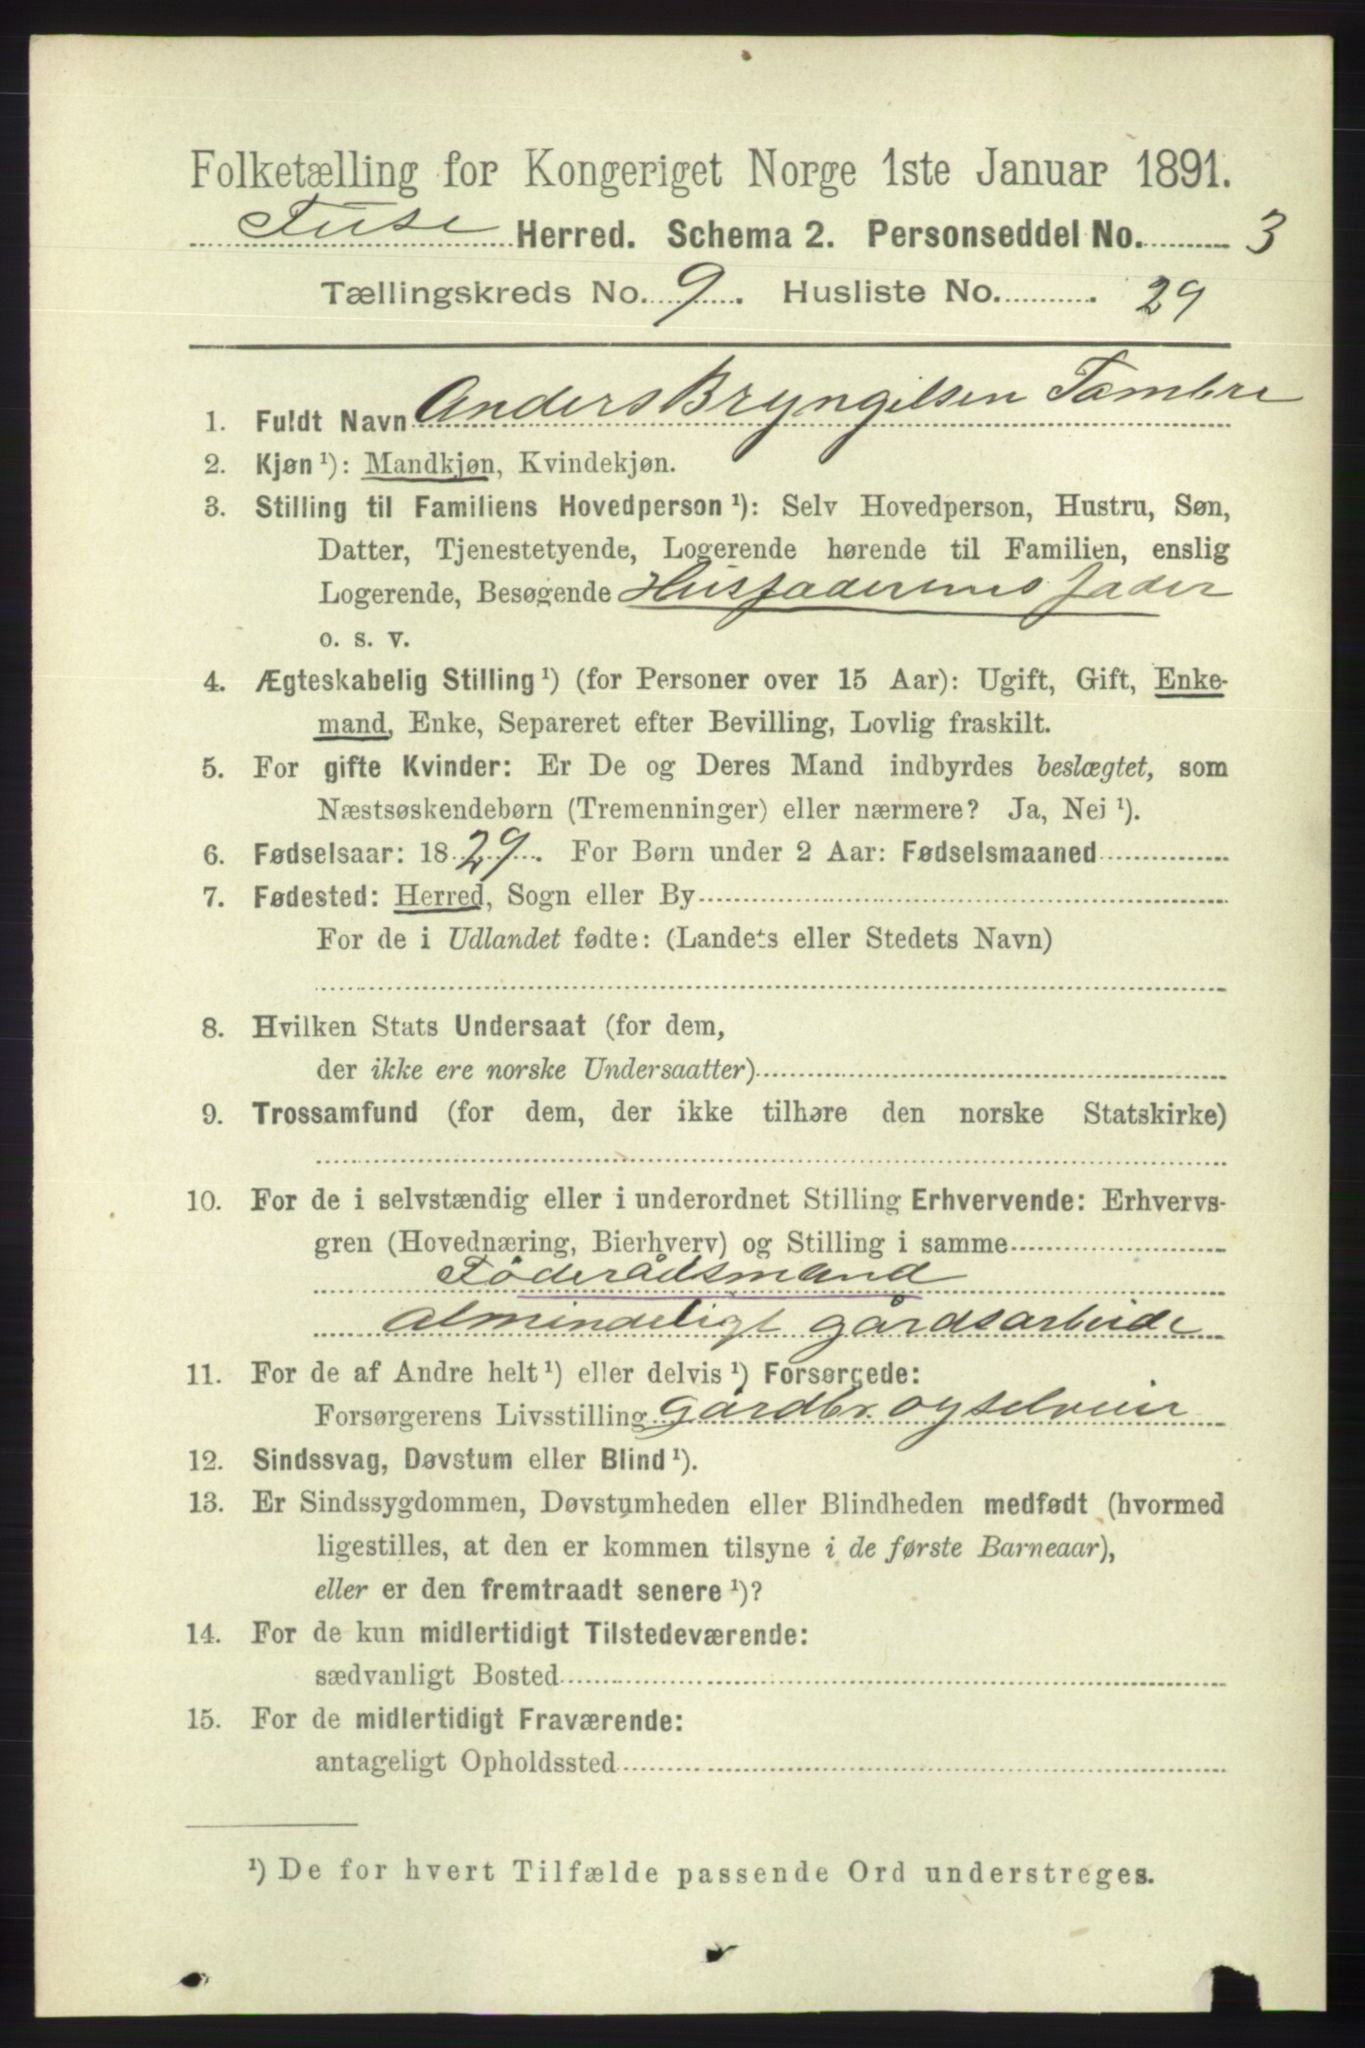 Folketælling for Kongeriget Norge 1ste Januar 1891.
Fuse Herred. Schema 2. Personseddel No. 3
Tællingskreds No. 9. Husliste No. 29
1. Fuldt Navn Anders Bryngilsen Tombre
2. Kjøn¹): Mandkjøn, Kvindekjøn.
3. Stilling til Familiens Hovedperson¹): Selv Hovedperson, Hustru, Søn,
Datter, Tjenestetyende, Logerende hørende til Familien, enslig
Logerende, Besøgende Husfaderens fader
o. s. v.
4. Ægteskabelig Stilling¹) (for Personer over 15 Aar): Ugift, Gift, Enke-
mand, Enke, Separeret efter Bevilling, Lovlig fraskilt.
5. For gifte Kvinder: Er De og Deres Mand indbyrdes beslægtet, som
Næstsøskendebørn (Tremenninger) eller nærmere? Ja, Nei¹).
6. Fødselsaar: 1829. For Børn under 2 Aar: Fødselsmaaned
7. Fødested: Herred, Sogn eller By
For de i Udlandet fødte: (Landets eller Stedets Navn)
8. Hvilken Stats Undersaat (for dem,
der ikke ere norske Undersaatter)
9. Trossamfund (for dem, der ikke tilhøre den norske Statskirke)
10. For de i selvstændig eller i underordnet Stilling Erhvervende: Erhvervs-
gren (Hovednæring, Bierhverv) og Stilling i samme
Föderådsmand
almindeligt gårdsarbeide
11. For de af Andre helt¹) eller delvis¹) Forsørgede:
Forsørgerens Livsstilling gårdbr. og selveier
12. Sindssvag, Døvstum eller Blind¹).
13. Er Sindssygdommen, Døvstumheden eller Blindheden medfødt (hvormed
ligestilles, at den er kommen tilsyne i de første Barneaar),
eller er den fremtraadt senere¹)?
14. For de kun midlertidigt Tilstedeværende:
sædvanligt Bosted
15. For de midlertidigt Fraværende:
antageligt Opholdssted
¹) De for hvert Tilfælde passende Ord understreges.